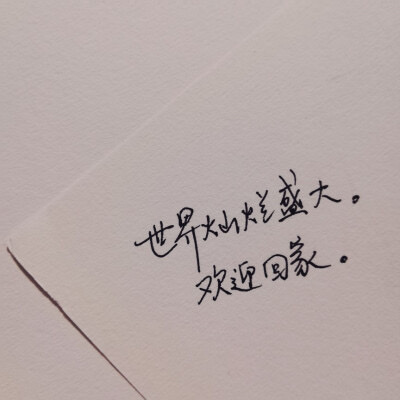 世界灿烂盛大。
欢迎回家。